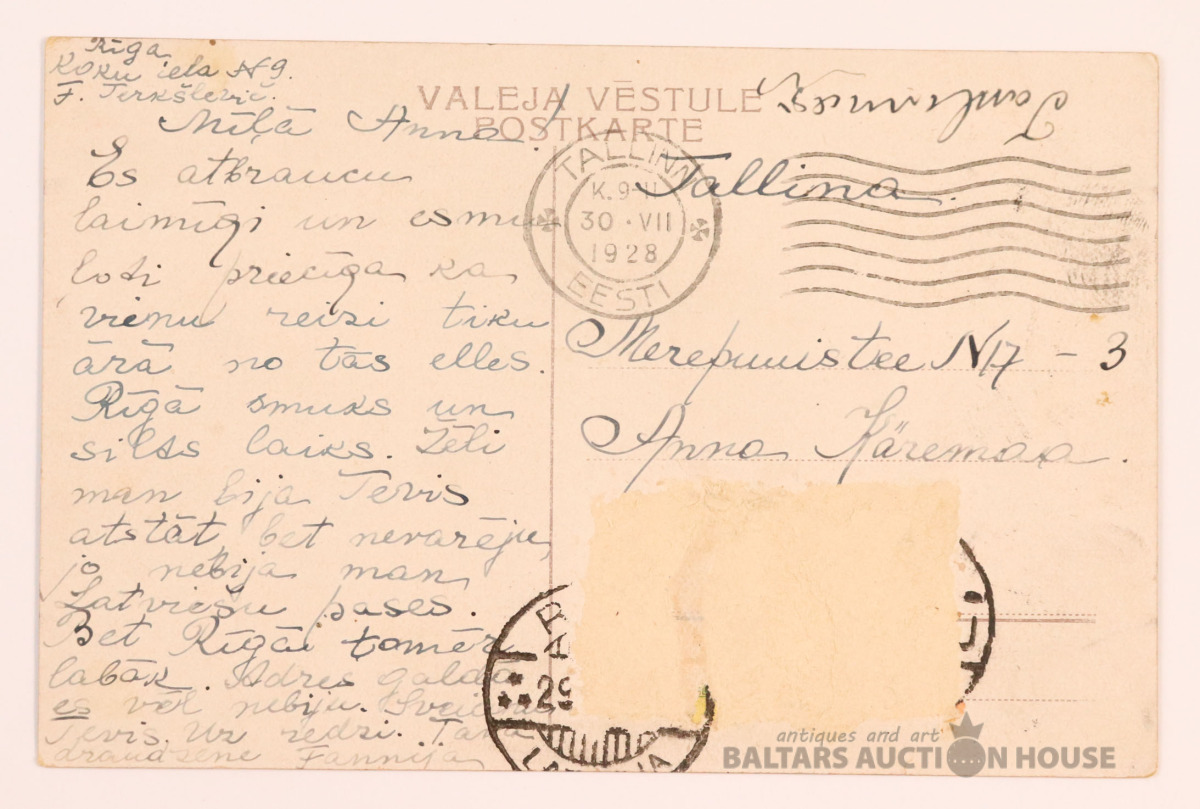 Rīga
Koku iela N9.
F. Terkšlevič.
Mīļā Anna!
Es atbraucu
laimīgi un esmu
ļoti priecīga ka
vienu reizi tiku
ārā no tās elles.
Rīgā smuks un
silts laiks. Žēli
man bija Tevis
atstāt, bet nevarēju,
jo nebija man
Latviešu pases.
Bet Rīgā tomēr
labāk. Adres galdā
es vēl nebiju. Sveicu
Tevis. Uz redzi. Tava
draudzene Fannija
VALEJA VĒSTULE
POSTKARTE
TALLINN
K. 9-11
30 · VII
1928
EESTI
Tallina.
Merepuiestee N17 – 3
Anna Käremaa.
29
LATVIJA
antiques and art
BALTARS AUCTION HOUSE